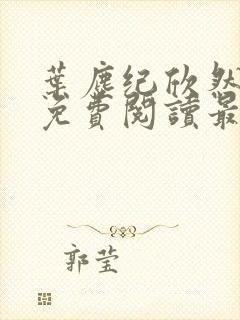 葉塵紀欣然
免費閱讀最
郭莹